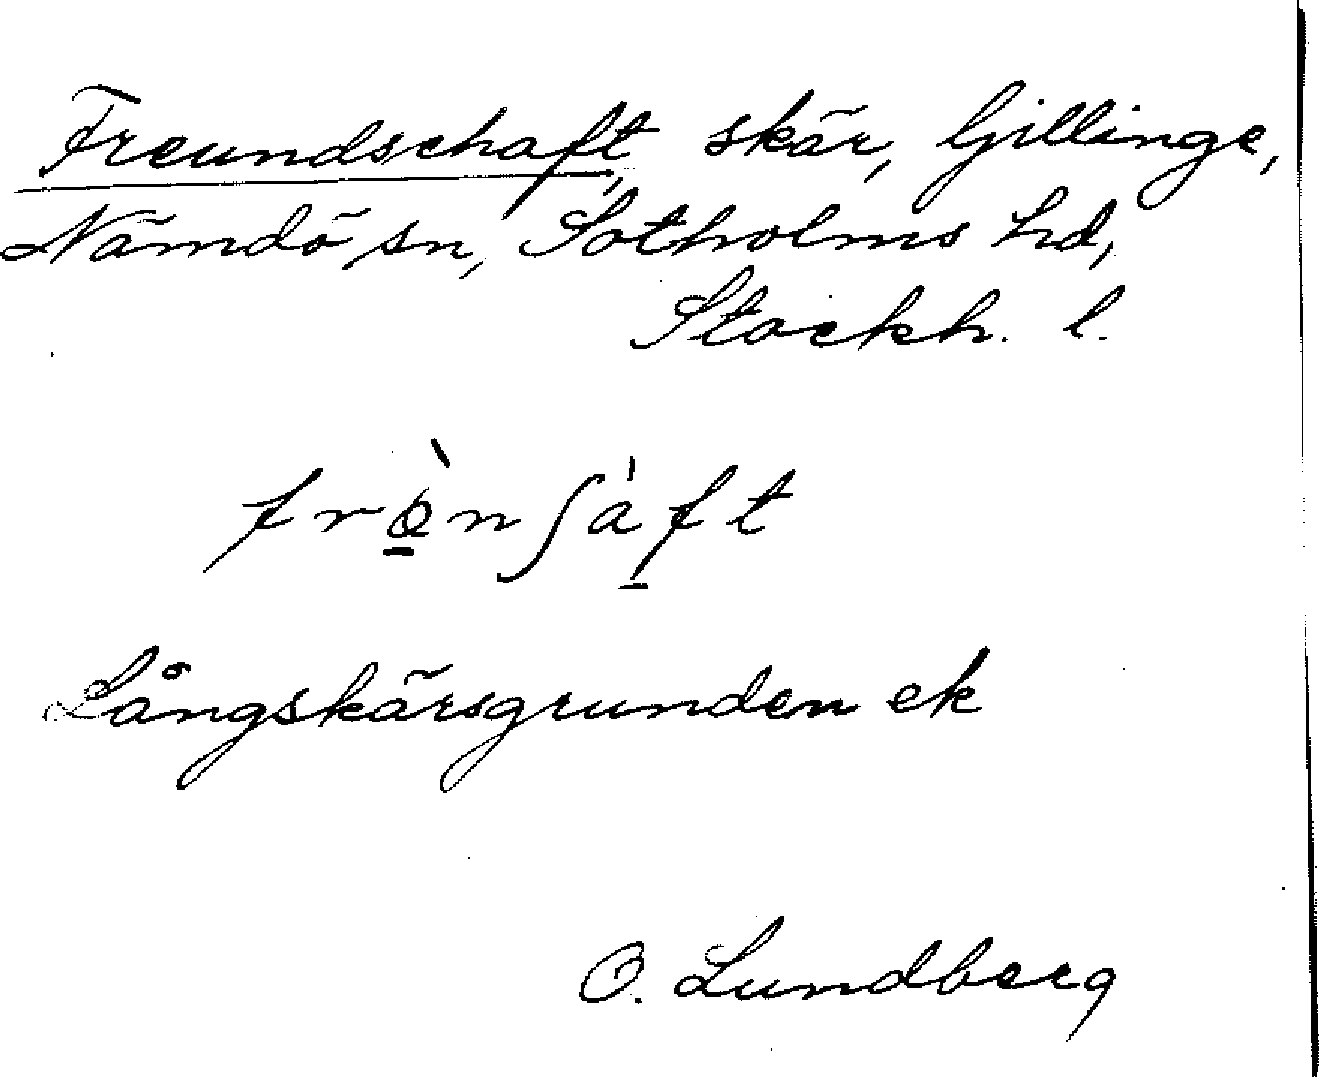 Freundschaft, skär, Gillinge,
Nämdö sn, Sotholms hd,
Stockh. l.
frø̀nʃàft
Långskärsgrunden ek
O. Lundberg